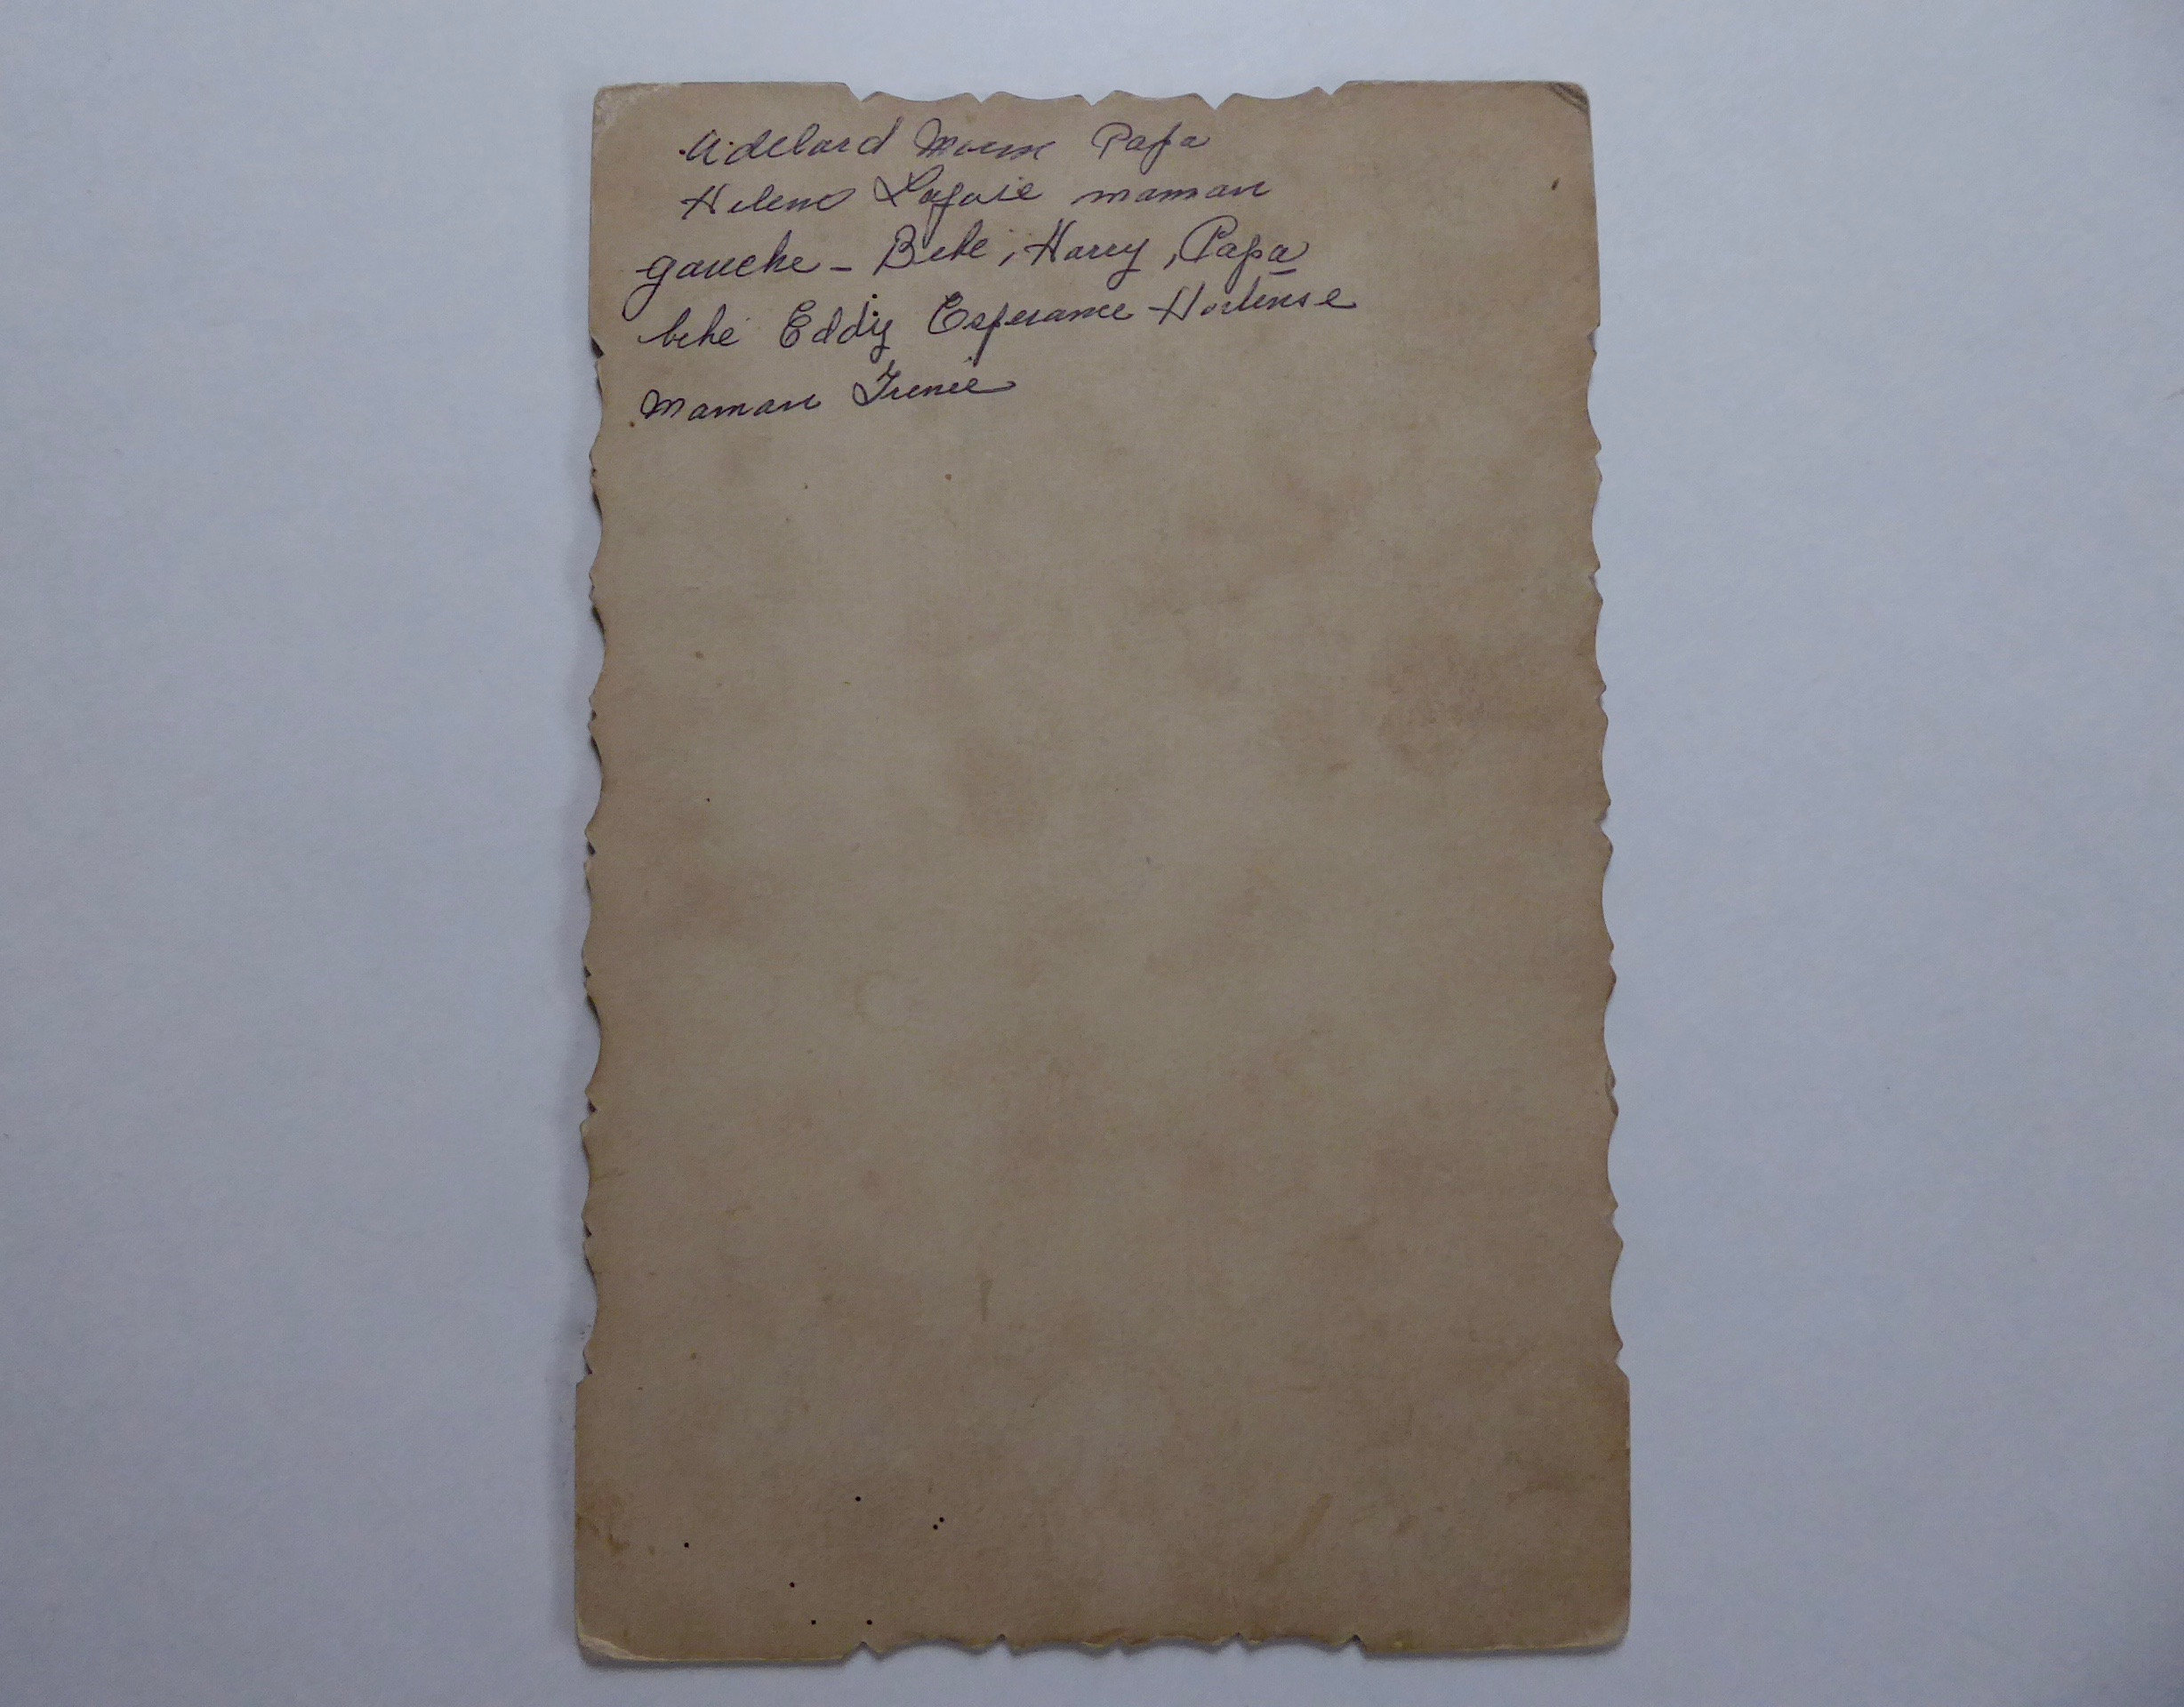 Adelard Papa
Helene Lajoie maman
gauche - Bebe, Harry, Papa
bebe Eddy Esperance Hortense
Maman Irenée